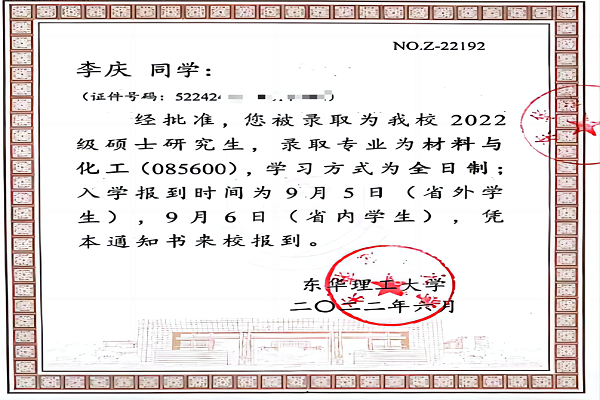 NO.Z-22192
李庆 同学：
（证件号码：52242
经批准，您被录取为我校2022
级硕士研究生，录取专业为材料与
化工（085600），学习方式为全日制；
入学报到时间为9月5日（省外学
生），9月6日（省内学生），凭
本通知书来校报到。
东华理工大学
二〇二二年六月